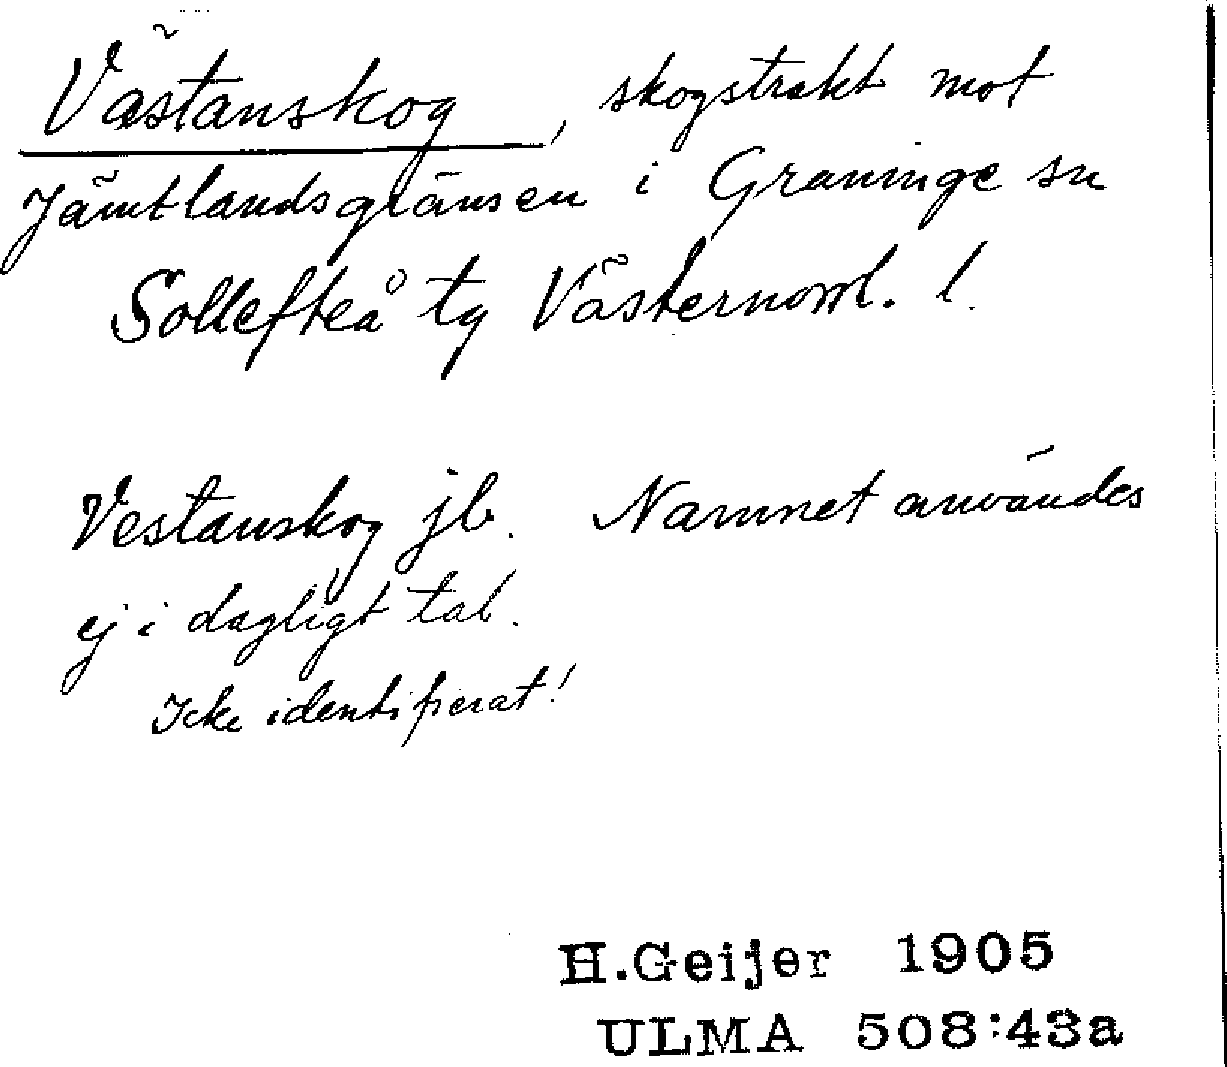 Västanskog, skogstrakt mot
Jämtlandsgränsen i Graninge sn
Sollefteå tg Västernorrl. l.
Vestanskog jb. Namnet användes
ej i dagligt tal.
Icke identifierat!
H.Geijer 1905
ULMA 508:43a